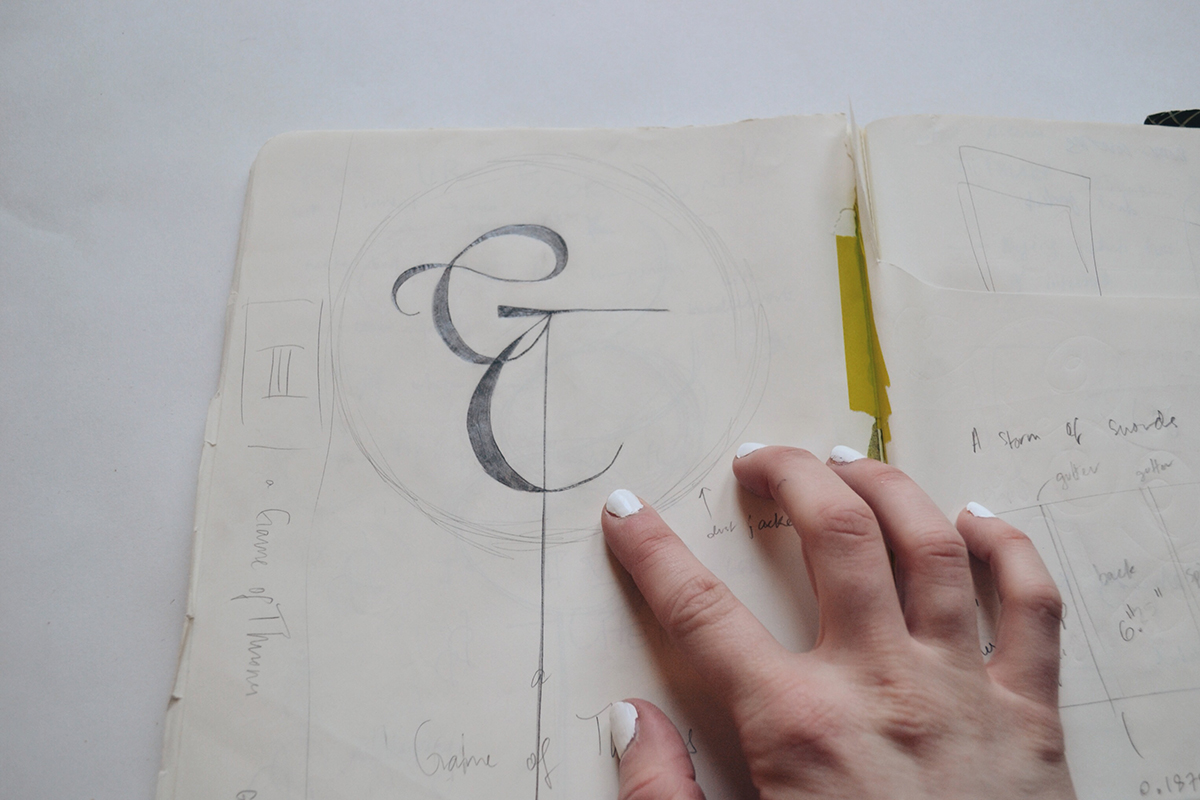 III
a Game of Thrones
dust jacke
a
Game of T
A Storm of Swords
gutter gutter
back
6."
0.187